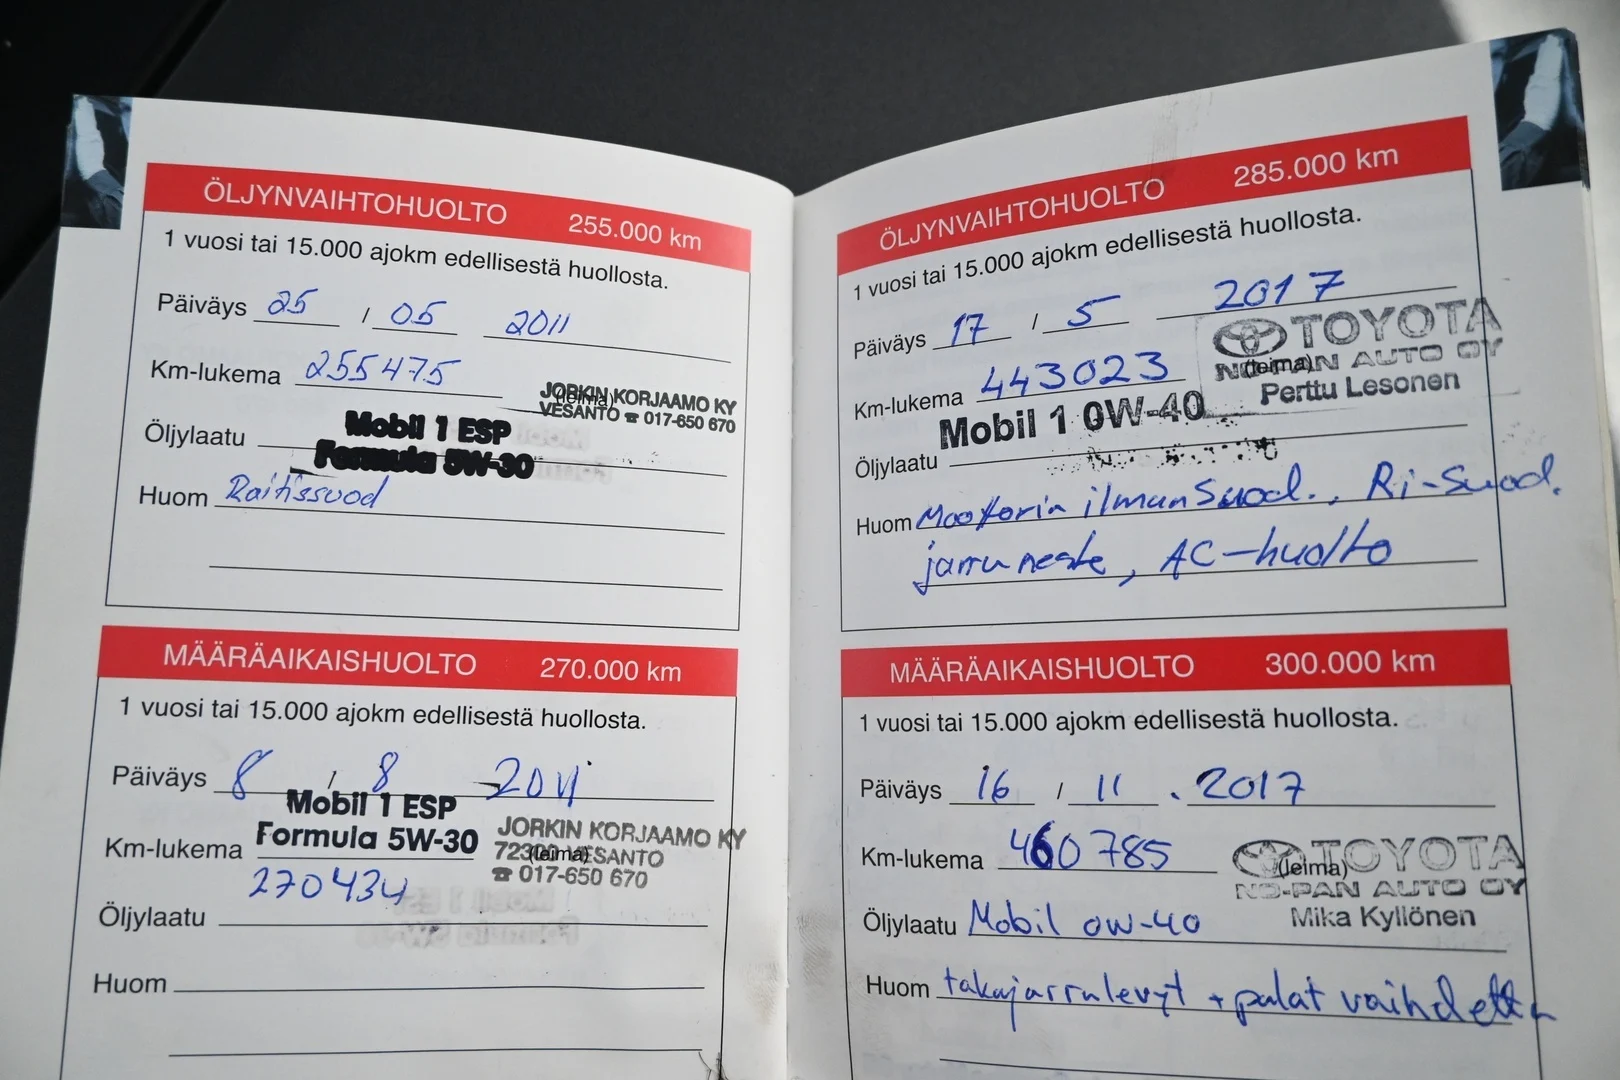 ÖLJYNVAIHTOHUOLTO 255.000 km
1 vuosi tai 15.000 ajokm edellisestä huollosta.
Päiväys 25 / 05 2011
Km-lukema 255475
JORKIN KORJAAMO KY
(leima)
VESANTO ☎ 017-650 670
Mobil 1 ESP
Öljylaatu
Formula 5W-30
Huom Raitissuod
MÄÄRÄAIKAISHUOLTO 270.000 km
1 vuosi tai 15.000 ajokm edellisestä huollosta.
Päiväys 8 / 8 2011
Mobil 1 ESP
Formula 5W-30
JORKIN KORJAAMO KY
Km-lukema
(leima) VESANTO
☎ 017-650 670
270434
Öljylaatu
Huom
ÖLJYNVAIHTOHUOLTO 285.000 km
1 vuosi tai 15.000 ajokm edellisestä huollosta.
Päiväys 17 / 5 2017
TOYOTA
AUTO OY
(leima)
Perttu Lesonen
Km-lukema 443023
Mobil 1 0W-40
Öljylaatu
Huom Moottorin ilmansuod., Ri-Suod.
jarruneste, AC-huolto
MÄÄRÄAIKAISHUOLTO 300.000 km
1 vuosi tai 15.000 ajokm edellisestä huollosta.
Päiväys 16 / 11 . 2017
Km-lukema 460785
TOYOTA
(leima)
NO-PAN AUTO OY
Mika Kyllönen
Öljylaatu Mobil 0W-40
Huom takajarrulevyt + palat vaihdettu